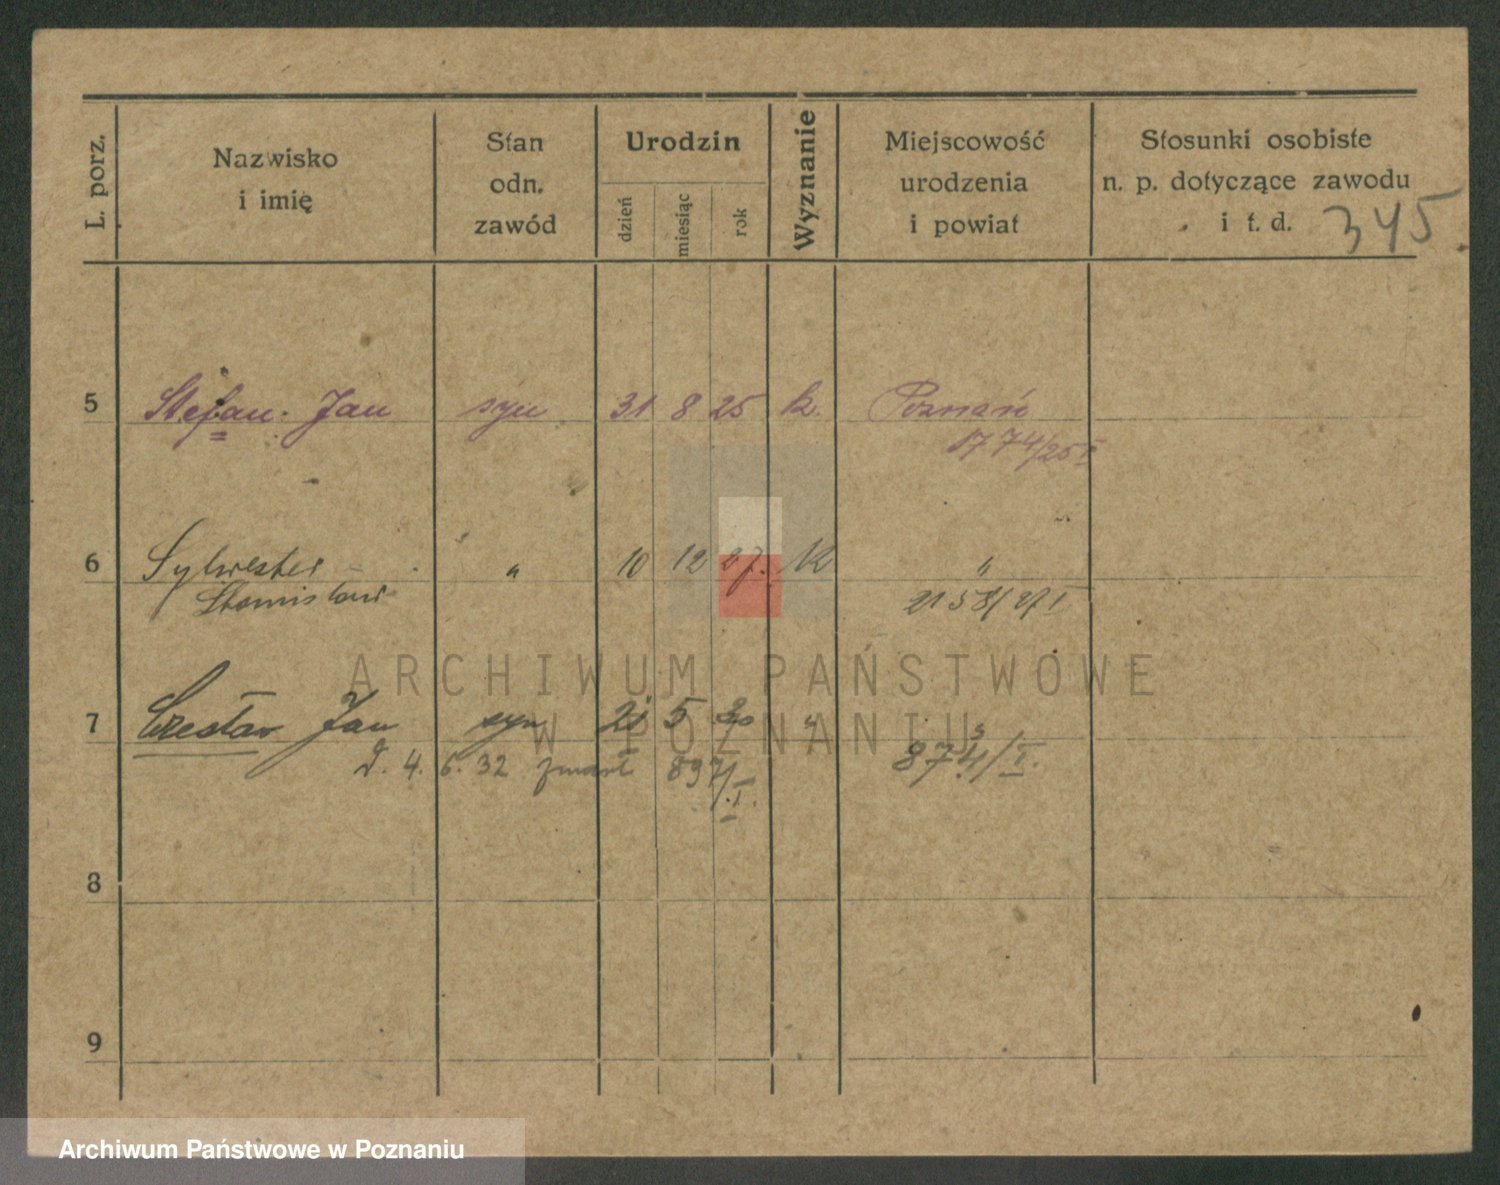 L. porz.
Nazwisko
i imię
Stan
odn.
zawód
Urodzin
dzień
miesiąc
rok
Wyznanie
Miejscowość
urodzenia
i powiat
Stosunki osobiste
n. p. dotyczące zawodu
i t. d.
345
5 Stefan Jan syn 31 8 25 k. Poznań
1774/25 I
6 Sylwester " 10 12 27. K "
Stanisław 2158/27 I
7 Czesław Jan syn 5 30 "
d. 4. 6. 32 897/I. 874/I.
8
9
ARCHIWUM PAŃSTWOWE
W POZNANIU
Archiwum Państwowe w Poznaniu